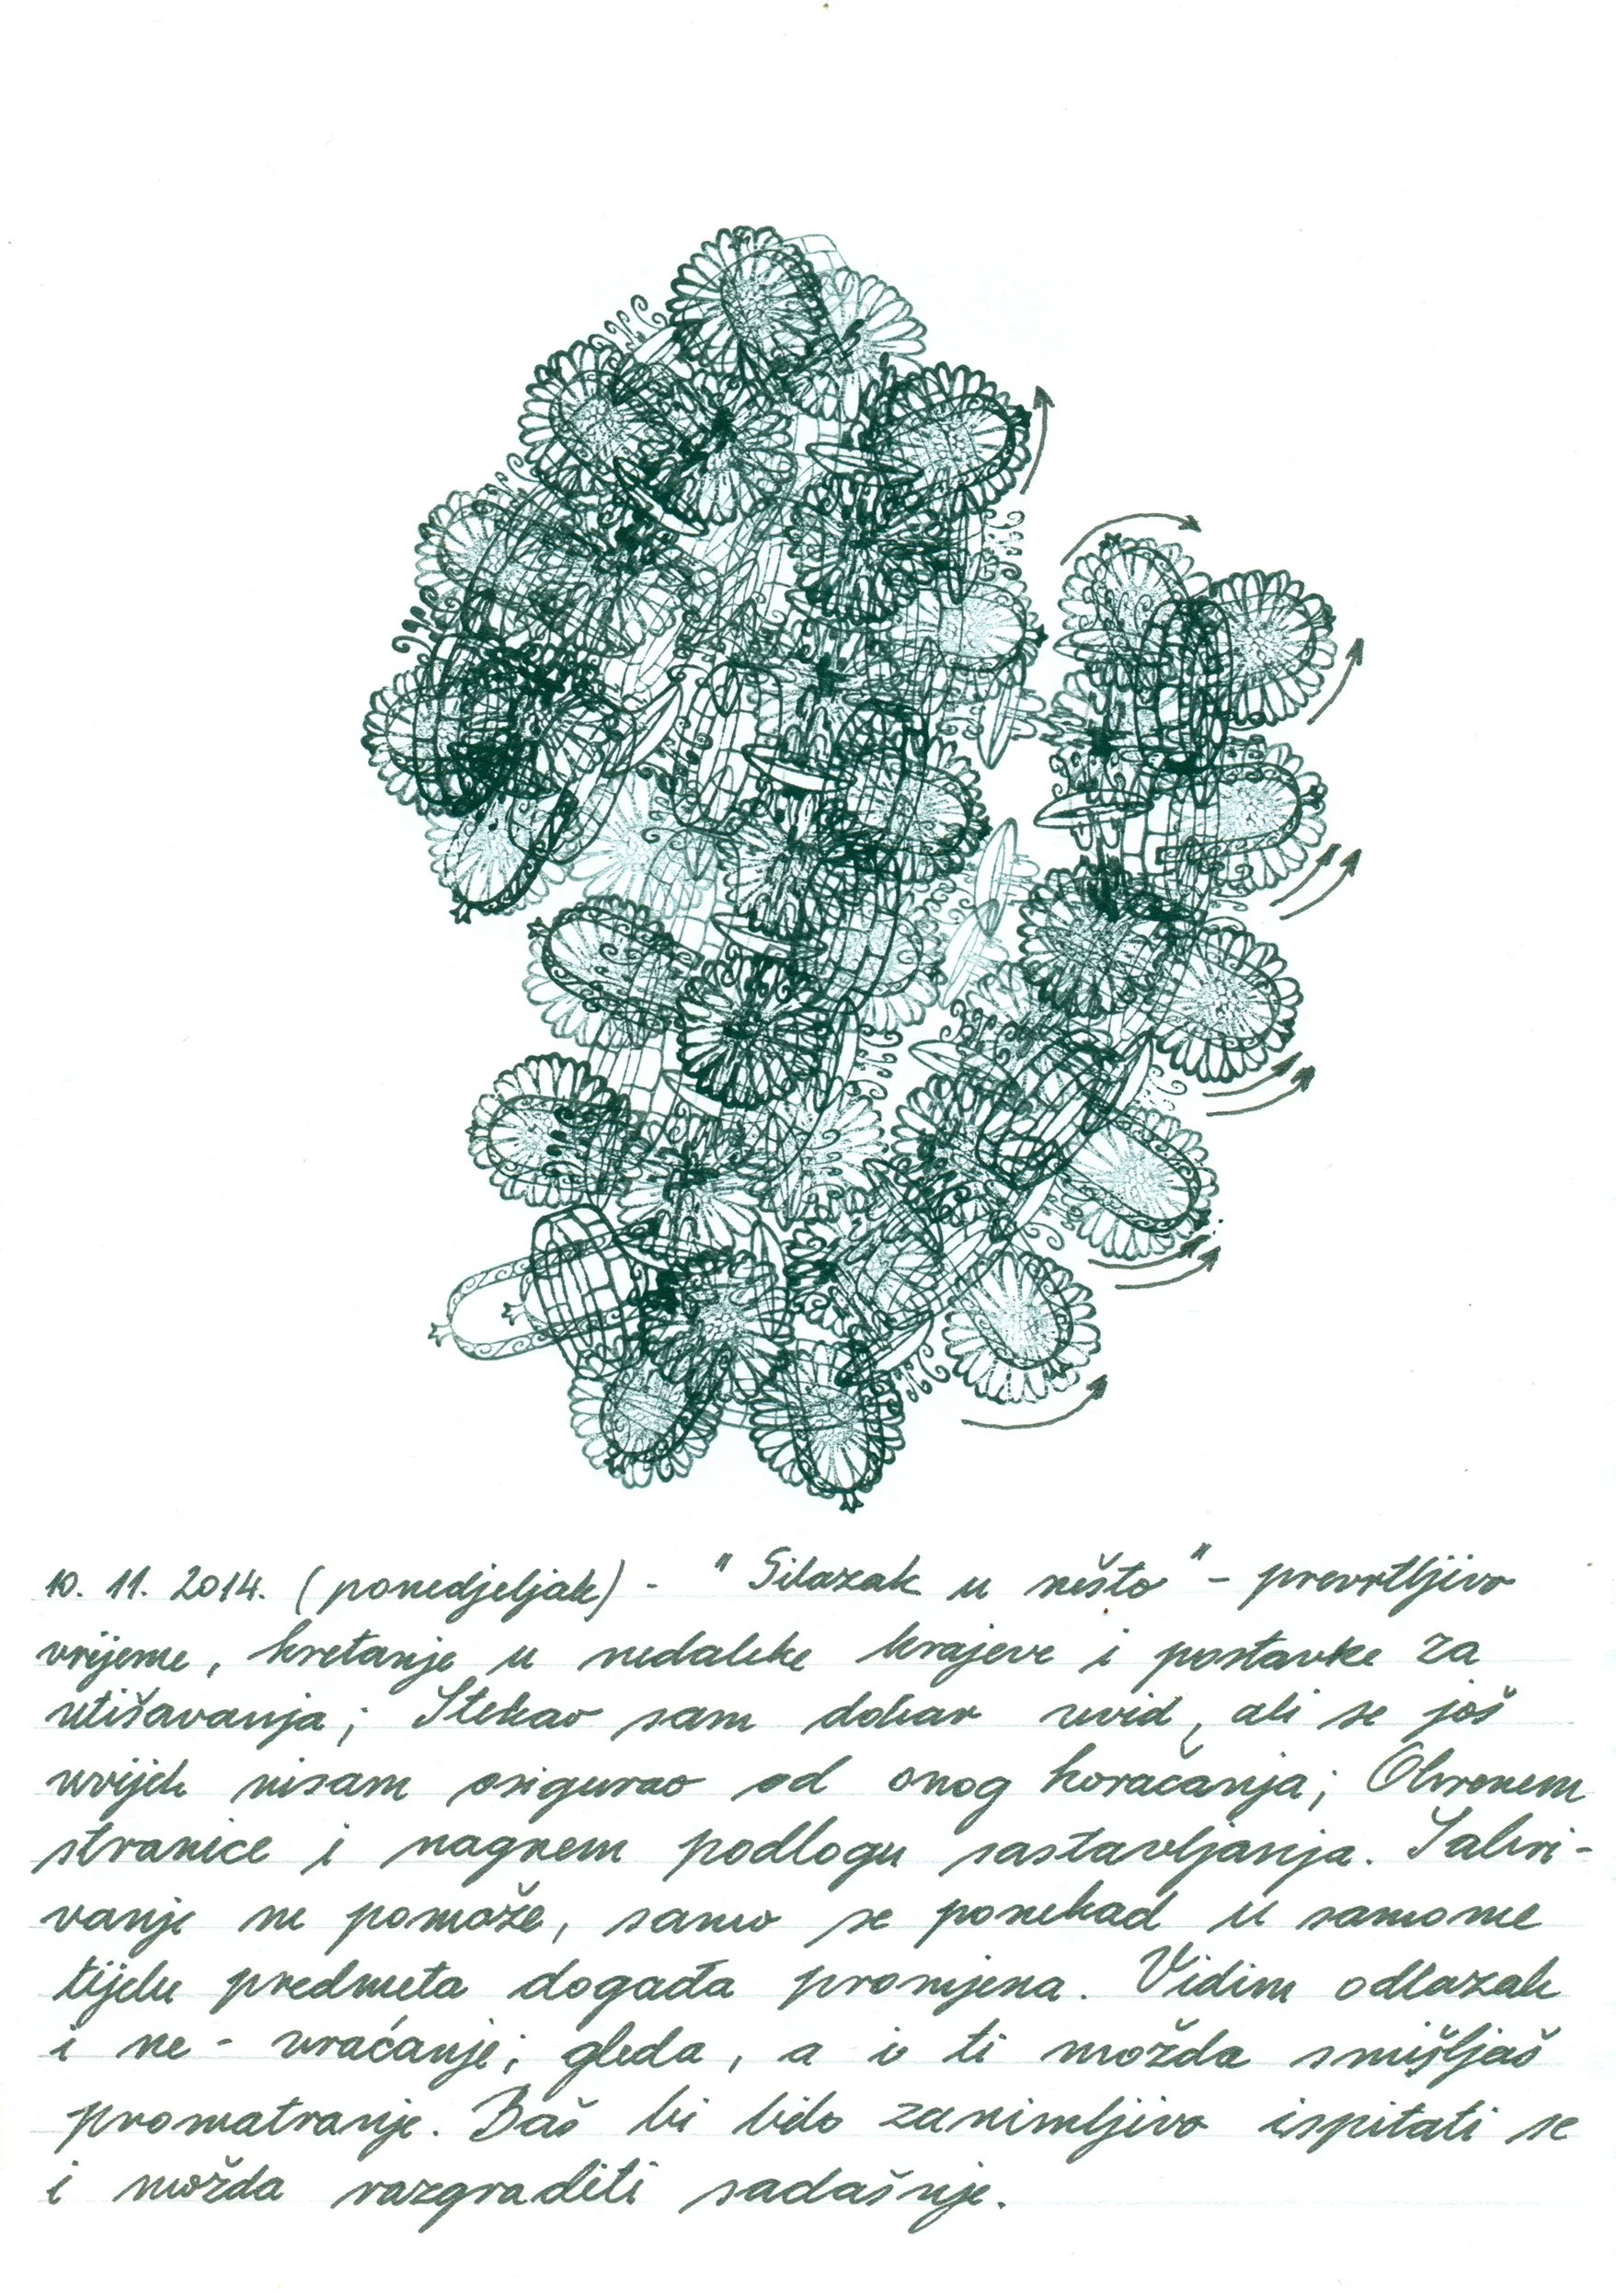 10. 11. 2014. (ponedjeljak) - "Silazak u nešto" - prevrtljivo
vrijeme, kretanje u nedaleke krajeve i postavke za
utišavanja; Stekao sam dobar uvid, ali se još
uvijek nisam osigurao od onog koračanja; Okrenem
stranice i nagnem podlogu sastavljanja. Sakri-
vanje ne pomaže, samo se ponekad u samome
tijelu predmeta događa promjena. Vidim odlazak
i ne - vraćanje; gleda, a i ti možda smišljaš
promatranje. Baš bi bilo zanimljivo ispitati se
i možda razgraditi sadašnje.